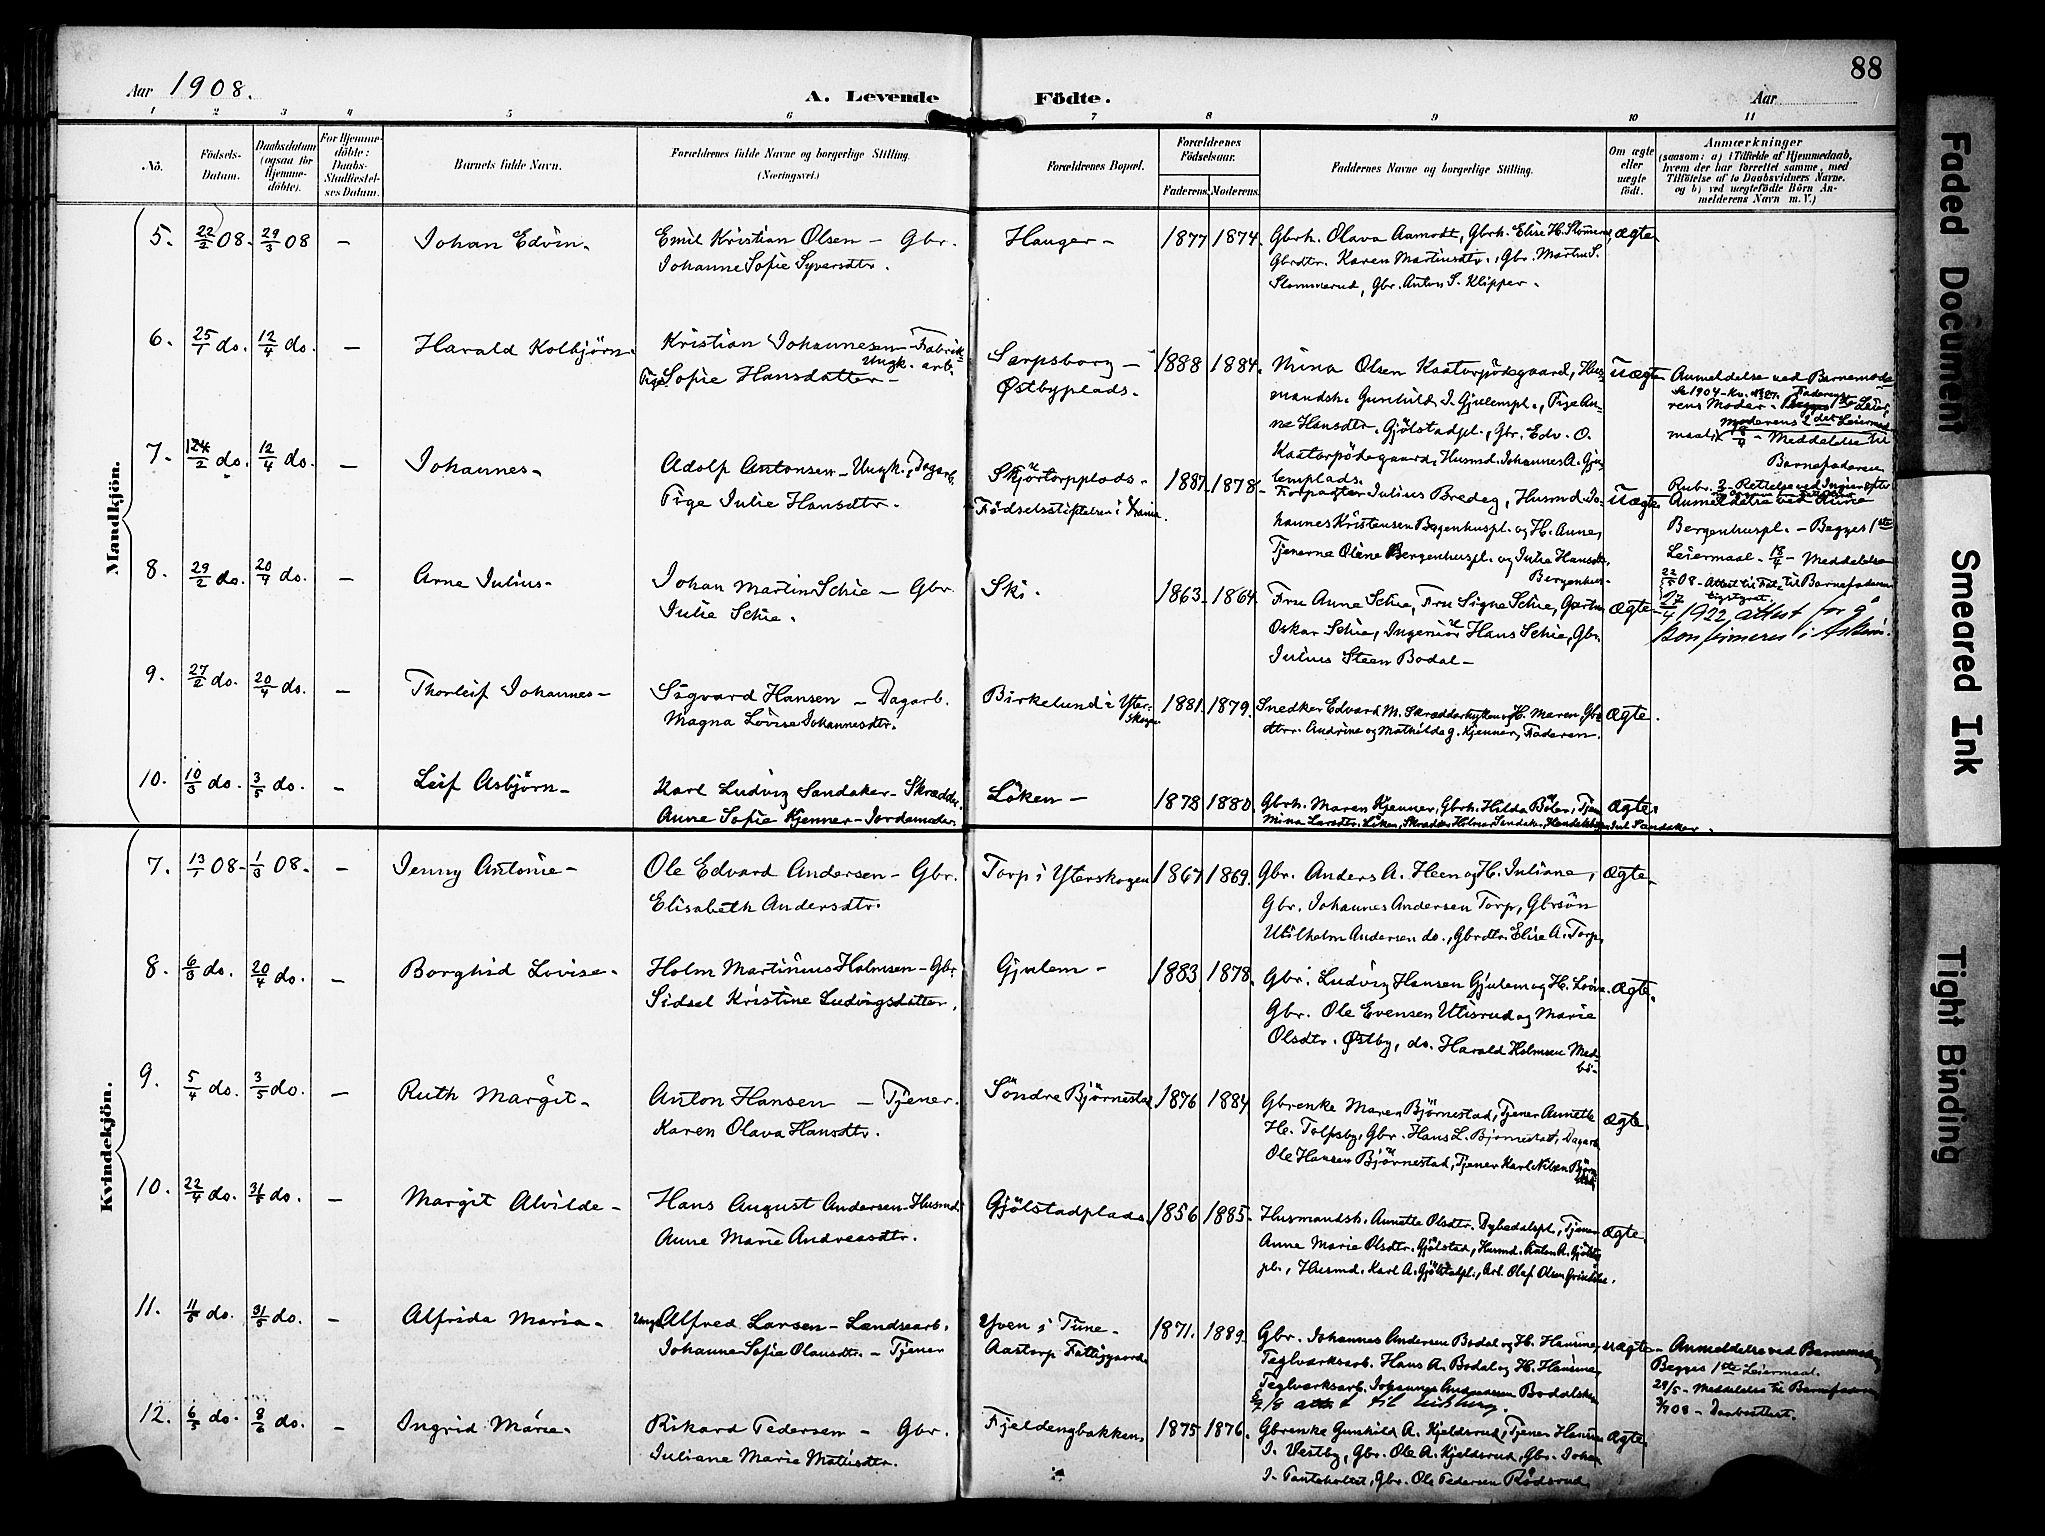 88
Aar 1908.
A. Levende Födte.
Aar
1 2 3 4 5 6 7 8 9 10 11
No.
Födsels-Datum.
Daabsdatum (ogsaa for Hjemmedöbte).
For Hjemmedöbte: Daabs-Stadfæstelses Datum.
Barnets fulde Navn.
Forældrenes fulde Navne og borgerlige Stilling. (Næringsvei.)
Forældrenes Bopæl.
Forældrenes Födselsaar.
Faderens. Moderens.
Faddernes Navne og borgerlige Stilling.
Om ægte eller uægte födt.
Anmærkninger
(saasom: a) i Tilfælde af Hjemmedaab,
hvem der har forrettet samme, med
Tilföielse af to Daabsvidners Navne.
og b) ved uægtefödte Börn An-
melderens Navn m. V.)
Mandkjön.
5. 22/2 08. 29/3 08 — Johan Edvin. Emil Kristian Olsen — Gbr. Hauger — 1877 1874. Gbrh. Olava Aamodt, Gbrh. Elise H. ægte.
Johanne Sofie Syversdtr. Gbrdtr. Karen Martinsdtr., Gbr. Martin S.
Slommerud, Gbr. Anton S. Klipper.
6. 25/1 do. 12/4 do. — Harald Kolbjörn. Kristian Johannesen — Fabrik-
Ungk. arb. Sarpsborg — 1888 1884. Mina Olsen Kaatorpödegaard, Hus- Uægte Anmeldelse ved Barnemode-
Pige Sofie Hansdatter — Østbyplads. mandsh. Gunhild I. Gjulempl., Pige An-
rens Moder —
ne Hansdtr. Gjölstadpl., Gbr. Edv. O.
maal. — Meddelelse til
Kaatorpödegaard, Husmd. Johannes A. Gju-
Barnefaderen
lemplads.
7. 24/2 do. 12/4 do. — Johannes — Adolf Antonsen — Ungk., Dagarb. Skjörtorpplads. 1887 1878 Forpagter Julius Bredeg, Husmd. Jo- Uægte. Anmeldelse ved
Pige Julie Hansdtr. Födselsstiftelsen i Xania.
hannes Kristensen Bergenhuspl. og H. Anne, Bergenhuspl. — Begges 1ste
Tjenerne Oline Bergenhuspl. og Julie Hansdtr. Leiermaal — 18/4 — Meddelelse
Bergenhus. til Barnefaderen
8. 29/2 do. 20/4 do. — Arne Julius — Johan Martin Schie — Gbr. Ski. 1863 1864. Fru Anne Schie, Fru Signe Schie, ægte 17/4 1922 attest for å
Julie Schie. Oskar Schie, Ingeniör Hans Schie, Gbr. konfirmeres i Askim.
Julius Steen Bodal —
9. 27/2 do. 20/4 do. — Thorleif Johannes — Sigvard Hansen — Dagarb. Birkelund i Yter-
skogen 1881. 1879. Snedker Edvard M. Skrædderhytten og H. Maren, Gbr. ægte.
Magna Lovise Johannesdtr. dtrr. Andrine og Mathilde G. Kjenner, Faderen.
10. 10/3 do. 3/5 do. — Leif Asbjörn — Karl Ludvig Sandaker — Skrædder. Löken — 1878 1880. Gbrh. Maren Kjenner, Gbrh. Hilda Böler, Tjen. ægte.
Anne Sofie Kjenner — Jordemoder. Mina Larsdtr. Löken, Skrædder Holmar Sandaker, Sandaker.
Kvindekjön.
7. 13/1 08 — 1/3 08. — Jenny Antonie — Ole Edvard Andersen — Gbr. Torp i Yterskogen 1867 1869. Gbr. Anders A. Heen og H. Juliane, ægte.
Elisabeth Andersdtr. Gbr. Johannes Andersen Torp, Gbrsön
Vilhelm Andersen do., Gbrdtr. Elise A. Torp.
8. 6/3 do. 20/4 do. — Borghild Lovise — Holm Martinius Holmsen — Gbr. Gjulem — 1883 1878. Gbr. Ludvig Hansen Gjulem og H. Lovise ægte.
Sidsel Kristine Ludvigsdatter. Gbr. Ole Evensen Utisrud og Marie
Olsdtr. Østby, do. Harald Holmsen Med-
bö.
9. 5/4 do. 3/5 do. — Ruth Margit — Anton Hansen — Tjener. Söndre Björnestad 1876 1884 Gbrenke Maren Björnestad, Tjener Annette ægte.
Karen Olava Hansdtr. He. Tolfsby, Gbr. Hans L. Björnestad, Dagarb.
Ole Hansen Björnestad, Tjener Karl Nilsen
10. 22/4 do. 31/5 do. — Margit Alvilde — Hans August Andersen — Husmd. Gjölstadplads 1856 1885. Husmandsh. Annette Olsdtr. Dybedalspl., Tjener ægte.
Anne Marie Andreasdtr. Anne Marie Olsdtr. Gjölstad, Husmd. Anton A. Gjölstad-
pl., Husmd. Karl A. Gjölstadpl., Arb. Olaf Olsen
11. 11/5 do. 31/5 do. — Alfrida Maria — Ungk. Alfred Larsen — Landsearb. Yven i Tune — 1871. 1889. Gbr. Johannes Andersen Bodal og H. Hansine, uægte — Anmeldelse ved Barnemoderen
Johanne Sofie Olausdtr. — Tjener Aastorp Fattiggaard. Teglværksarb. Hans A. Bodal og H. Hansine, Begges 1ste Leiermaal.
Teglværksarb. Johannes Andreassen 29/5 — Meddelelse til Barnefaderen
08 — Daabsattest.
12. 6/5 do. 8/6 do. — Ingrid Marie. Rikard Pedersen — Gbr. Fjeldengbakken. 1875 1876. Gbrenke Gunhild A. Kjeldsrud, Tjener Hansine ægte.
Juliane Marie Mathisdtr. I. Vestby, Gbr. Ole A. Kjeldsrud, Gbr. Johan
I. Tanteholtet, Gbr. Ole Pedersen Rödsrud.
Faded Document
Smeared Ink
Tight Binding